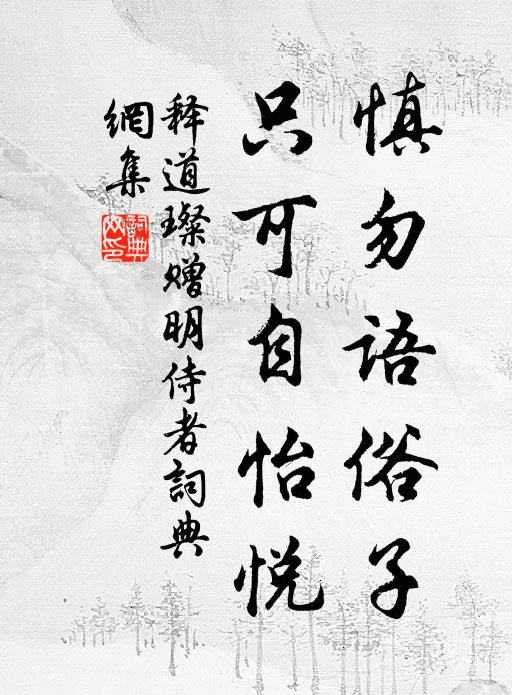 慎勿语俗子
只可自怡悦
释道璨赠明侍者詞典
網集
詞典
网印